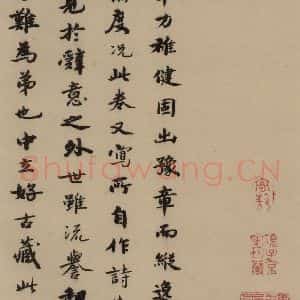 力雅健固出豫章而縱逸
度况此卷又寫所自作詩
見於辭意之外世雖流譽
難為弟也中立好古藏此
Shufawang.CN